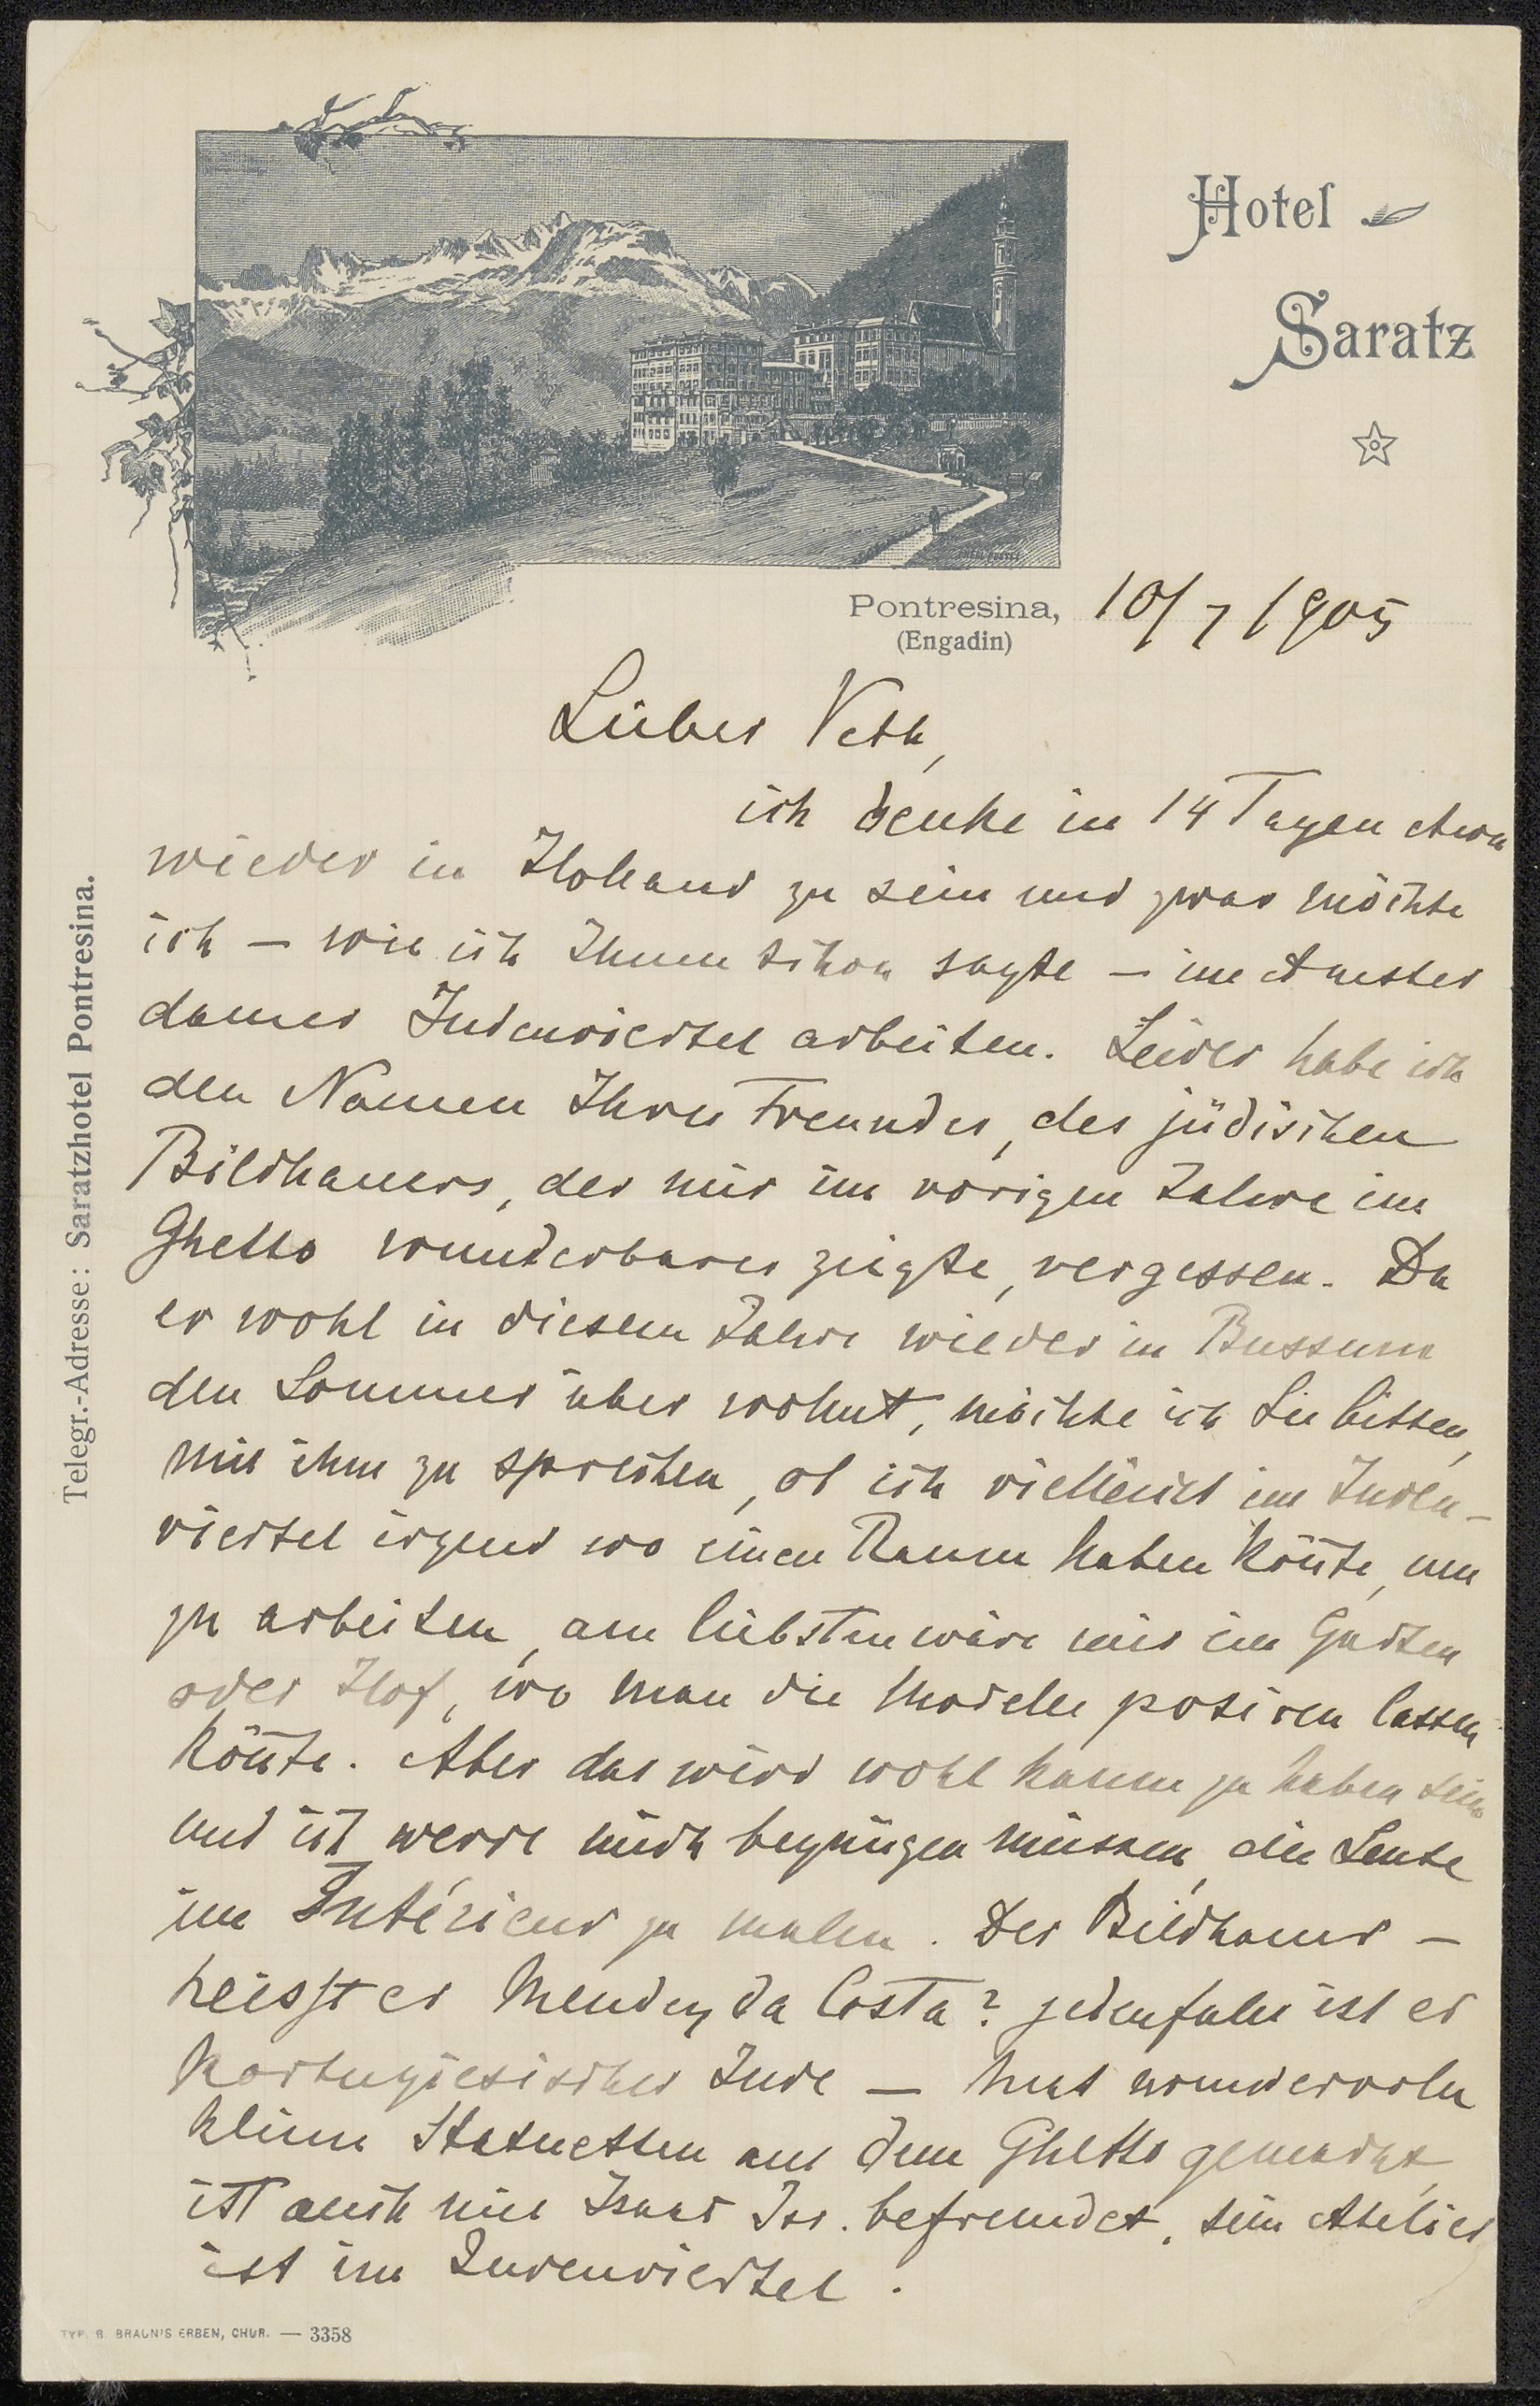 Hotel
Saratz
Pontresina, 10/7 1905
(Engadin)
Telegr.-Adresse: Saratzhotel Pontresina.
Lieber Veth,
ich denke in 14 Tagen etwa
wieder in Holland zu sein und zwar möchte
ich – wie ich Ihnen schon sagte – im Amster
damer Judenviertel arbeiten. Leider habe ich
den Namen Ihres Freundes, des jüdischen
Bildhauers, der mir im vorigen Jahre im
Ghetto wunderbares zeigte, vergessen. Da
er wohl in diesem Jahre wieder in Bussum
den Sommer über wohnt, möchte ich Sie bitten,
mit ihm zu sprechen, ob ich vielleicht im Juden-
viertel irgend wo einen Raum haben kön̄te, um
zu arbeiten, am liebsten wäre mir ein Garten
oder Hof, wo man die Modelle posiren lassen
kön̄te. Aber das wird wohl kaum zu haben sein
und ich werde mich begnügen müssen, die Leute
im Intérieur zu malen. Der Bildhauer –
heisst er Mendez da Costa? jedenfalls ist er
portugiesischer Jude – hat wundervolle
kleine Statuetten aus dem Ghetto gemacht,
ist auch mit Isaac Isr. befreundet, sein Atelier
ist im Judenviertel.
TYP. B. BRAUN'S ERBEN, CHUR. — 3358